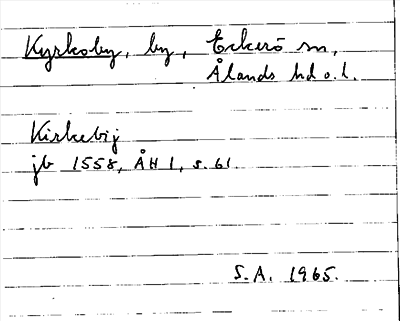 Kyrkoby, by, Eckerö sn,
Ålands hd o. l.
Kirkebij
jb 1558, ÅH 1, s. 61.
S.A. 1965.